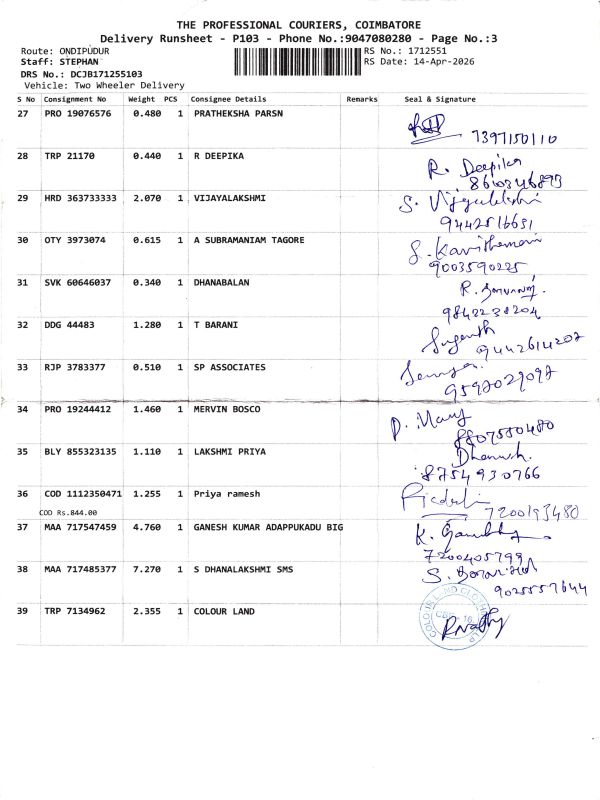 THE PROFESSIONAL COURIERS, COIMBATORE
Delivery Runsheet - P103 - Phone No.:9047080280 - Page No.:3
Route: ONDIPUDUR
Staff: STEPHAN
DRS No.: DCJB171255103
Vehicle: Two Wheeler Delivery
RS No.: 1712551
RS Date: 14-Apr-2026
S No Consignment No Weight PCS Consignee Details Remarks Seal & Signature
27 PRO 19076576 0.480 1 PRATHEKSHA PARSN
7397150110
28 TRP 21170 0.440 1 R DEEPIKA
R. Deepika
8610346893
29 HRD 363733333 2.070 1 VIJAYALAKSHMI
S. Vijayalakshmi
9442516631
30 OTY 3973074 0.615 1 A SUBRAMANIAM TAGORE
9003590225
31 SVK 60646037 0.340 1 DHANABALAN
9842238204
32 DDG 44483 1.280 1 T BARANI
Suganth
9442614207
33 RJP 3783377 0.510 1 SP ASSOCIATES
9597029097
34 PRO 19244412 1.460 1 MERVIN BOSCO
D. Mary
8807550480
35 BLY 855323135 1.110 1 LAKSHMI PRIYA
Dhanush.
8754930766
36 COD 1112350471 1.255 1 Priya ramesh
COD Rs.844.00
7200193480
37 MAA 717547459 4.760 1 GANESH KUMAR ADAPPUKADU BIG
7200405799
38 MAA 717485377 7.270 1 S DHANALAKSHMI SMS
9025557644
39 TRP 7134962 2.355 1 COLOUR LAND